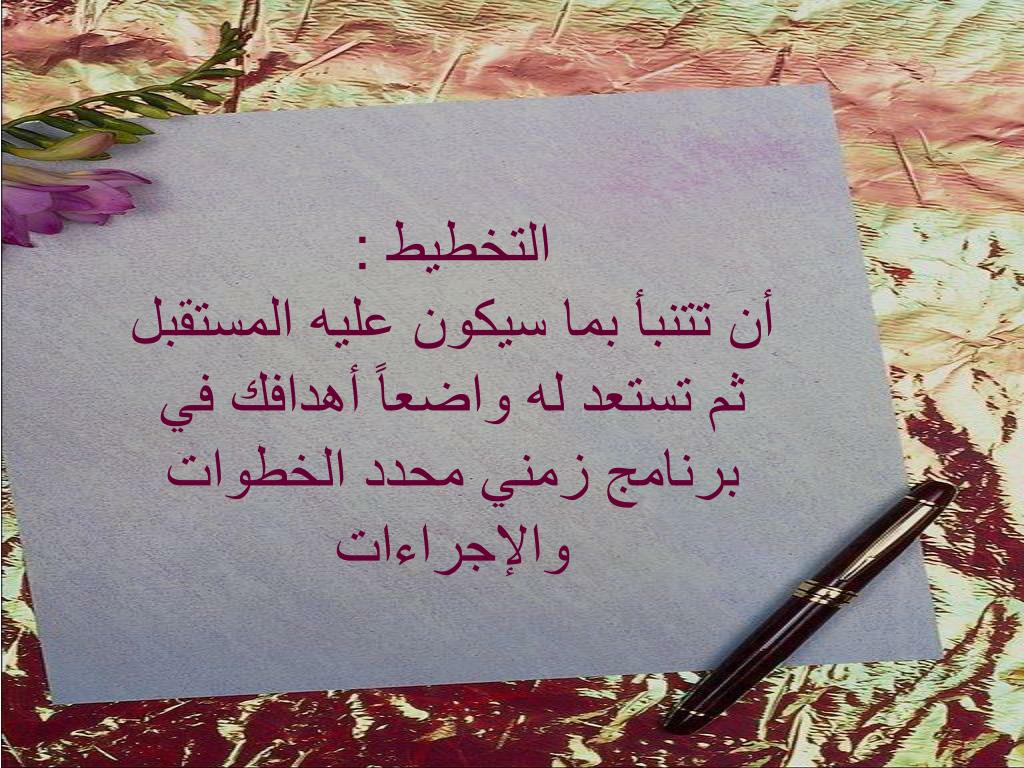 التخطيط :
أن تتنبأ بما سيكون عليه المستقبل
ثم تستعد له واضعاً أهدافك في
برنامج زمني محدد الخطوات
والإجراءات